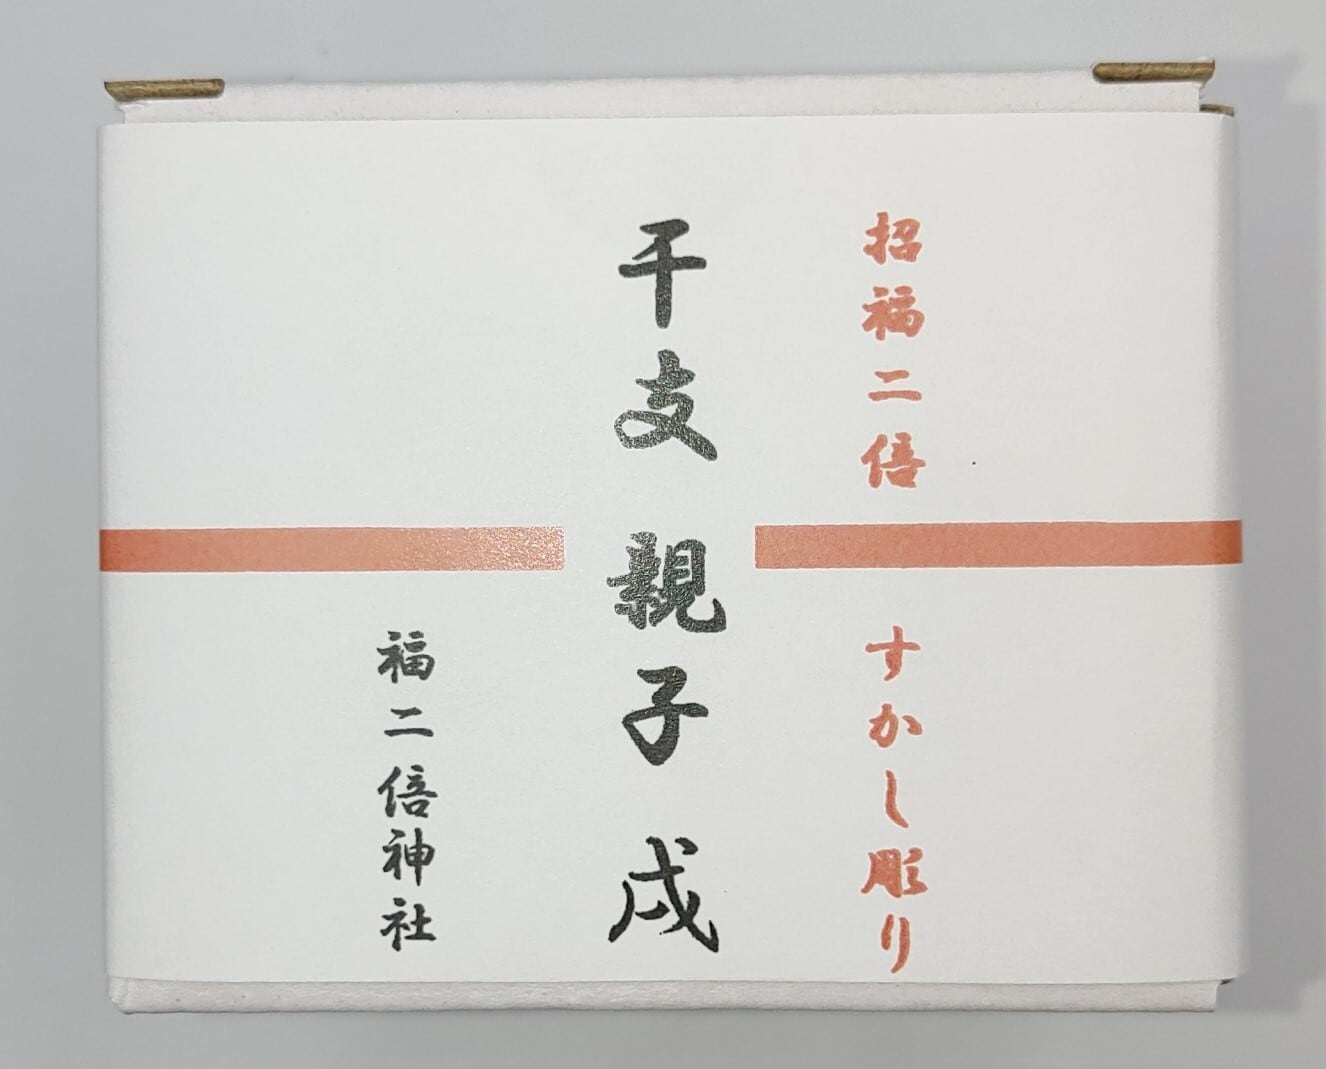 招福二倍 すかし彫り
干支 親子 戌
福二倍神社